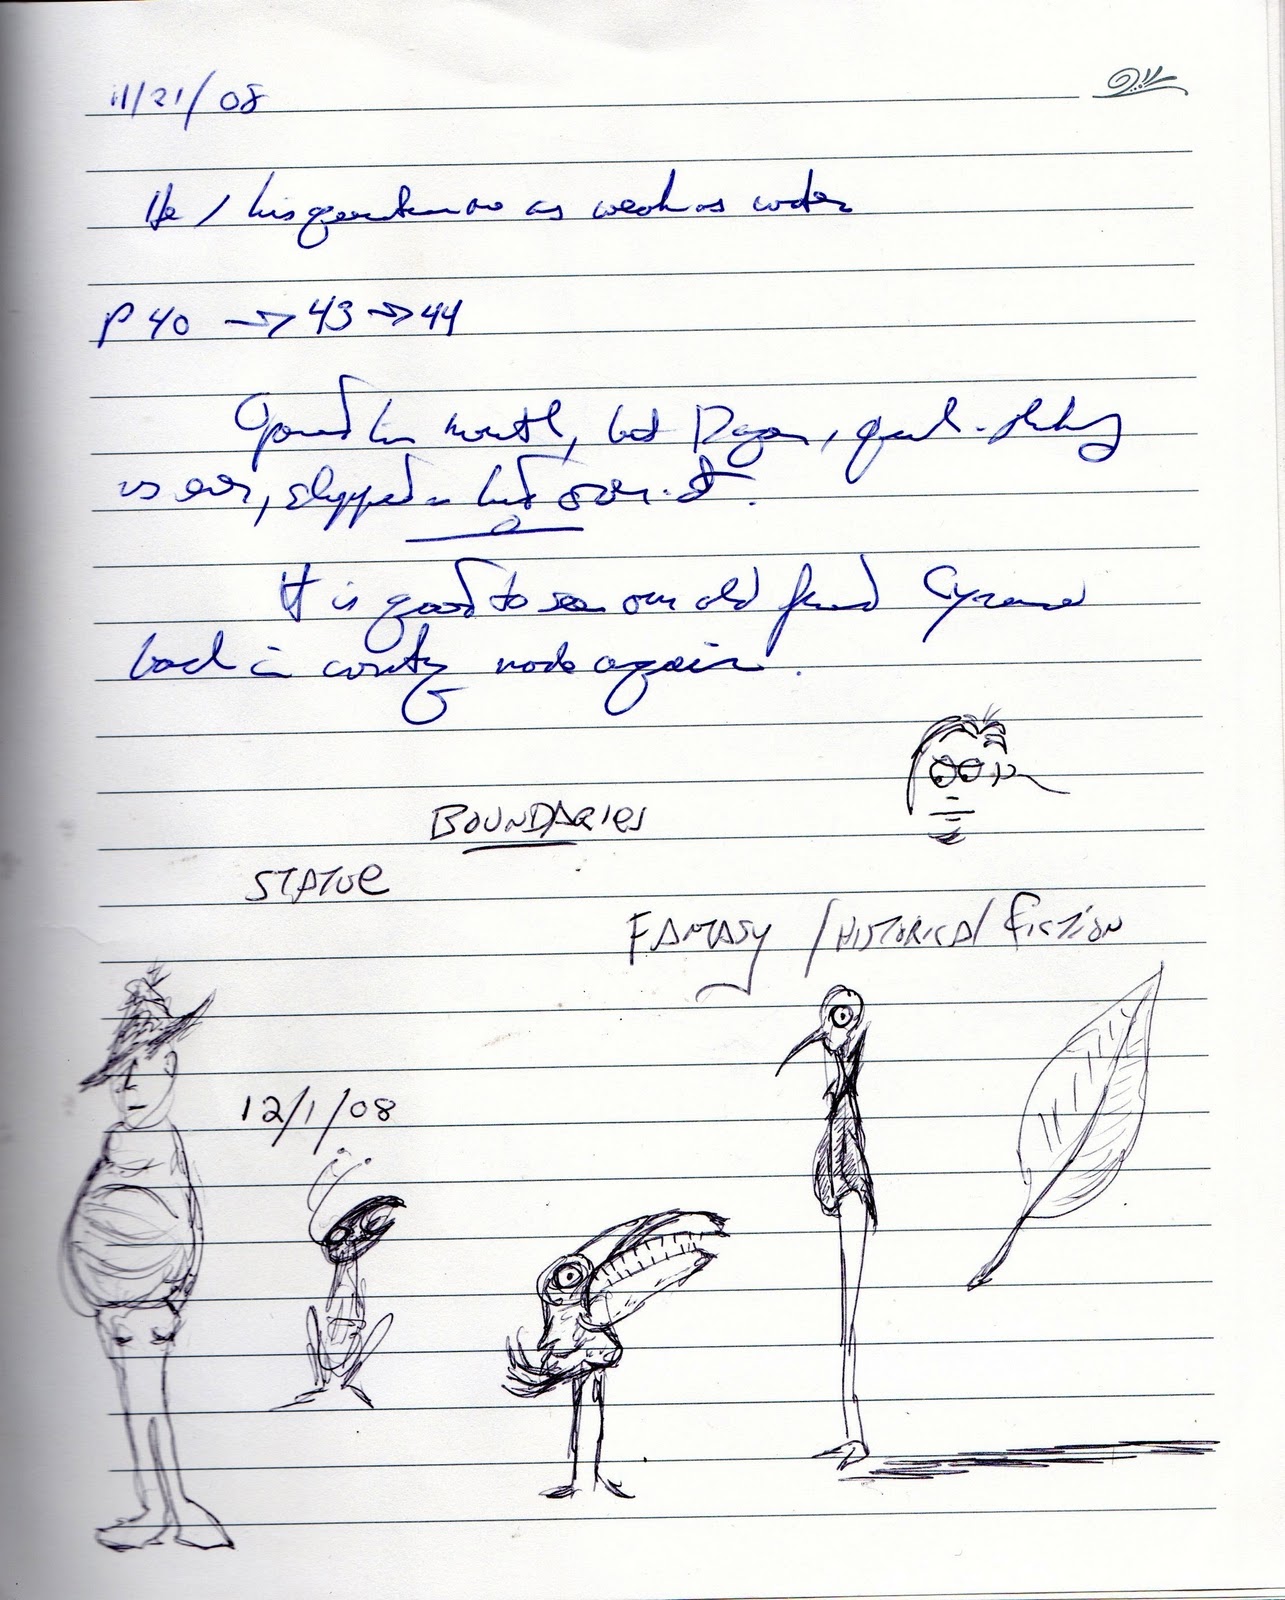 11/21/08
He / his as weak as water
P 40 → 43 → 44
Opened his mouth, but Dagon, quick-thinking
as ever, slipped a lid over it.
It is good to see our old friend Cyrano
back in county mode again.
BOUNDARIES
STATUE
FANTASY / HISTORICAL FICTION
12/1/08